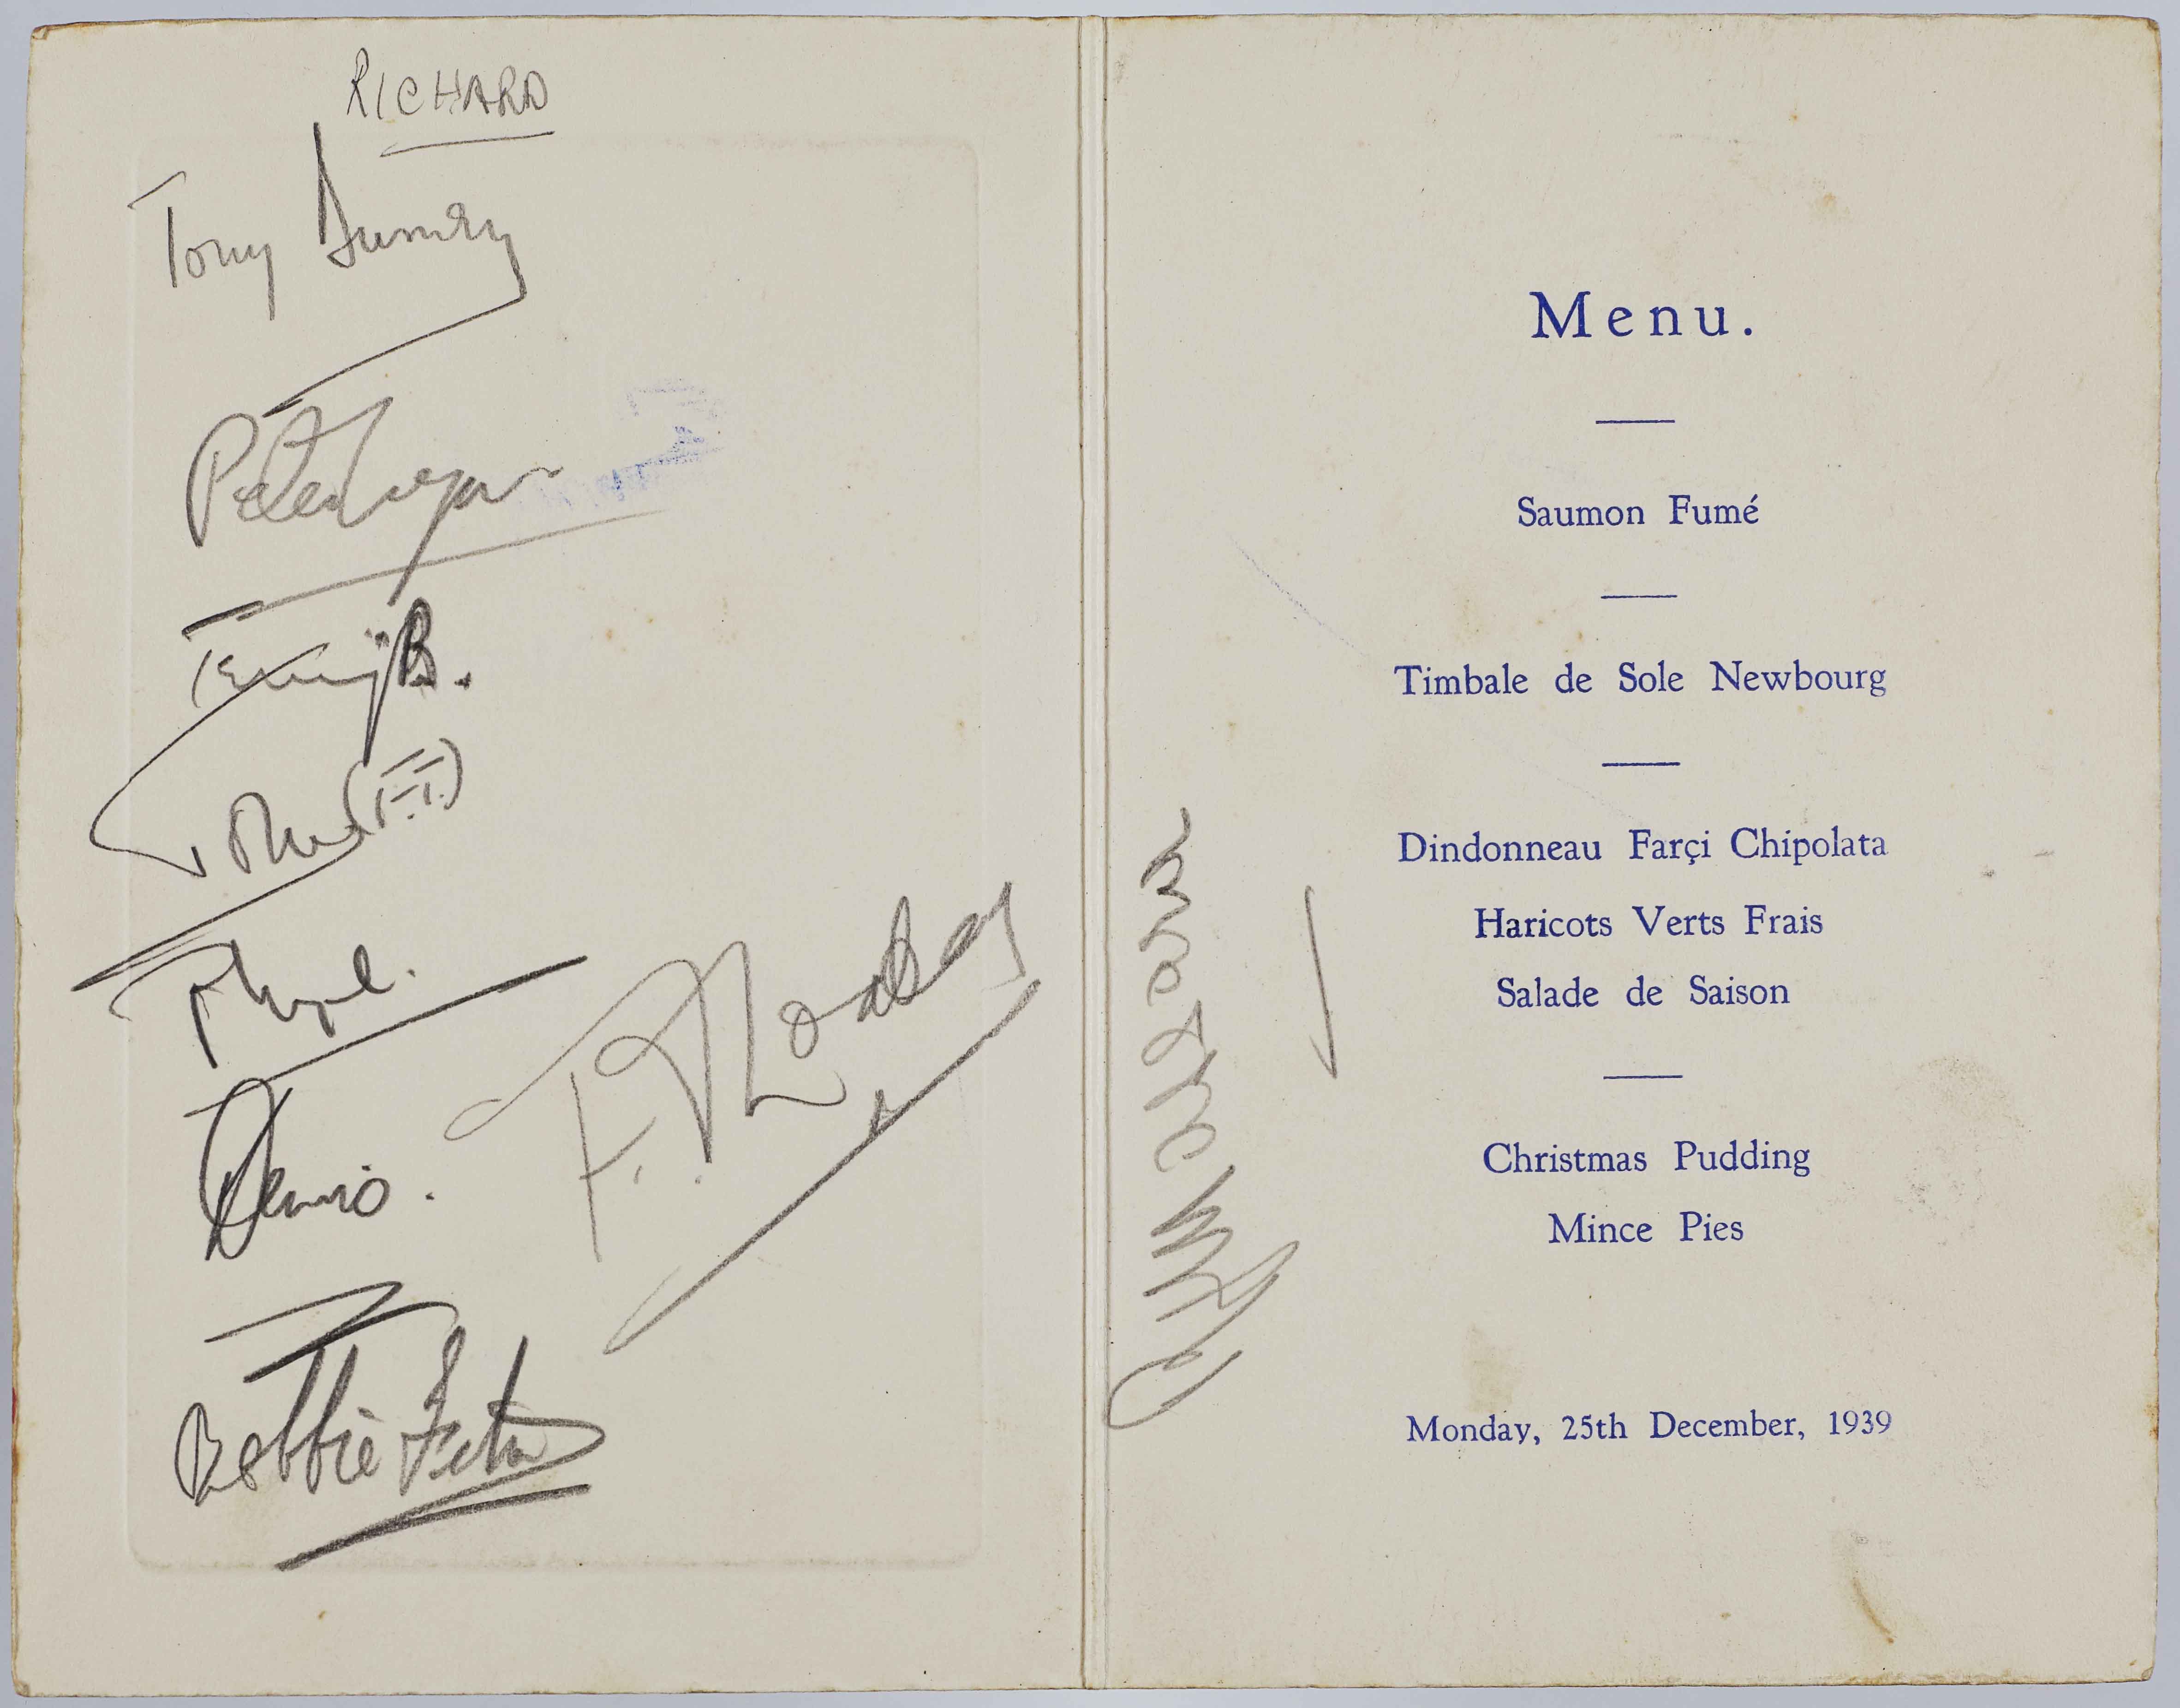 RICHARD
Tony
Peter
B.
Phyl.
Denis.
Bobbie
F.
Menu.
Saumon Fumé
Timbale de Sole Newbourg
Dindonneau Farçi Chipolata
Haricots Verts Frais
Salade de Saison
Christmas Pudding
Mince Pies
Monday, 25th December, 1939